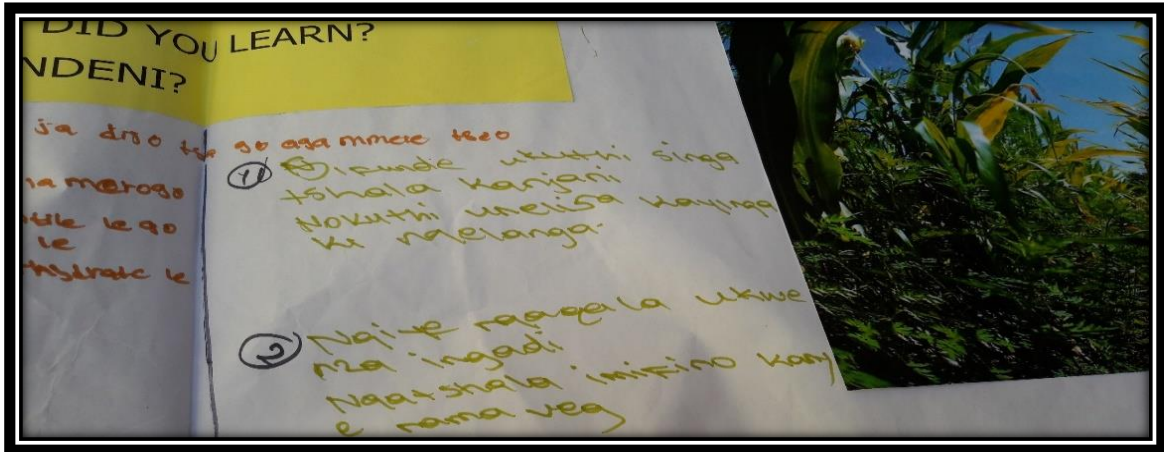 DID YOU LEARN?
NDENI?
ja dijo tse go aga mmele tseo
na merogo
le go
le
le
(1) Sifunde ukuthi singa
tshala kanjani
Nokuthi unelisa kayinga
ki ngelanga.
(2) Ngite ngaqala ukwe
nza ingadi
Ngatshala imifino kanj
e nama veg